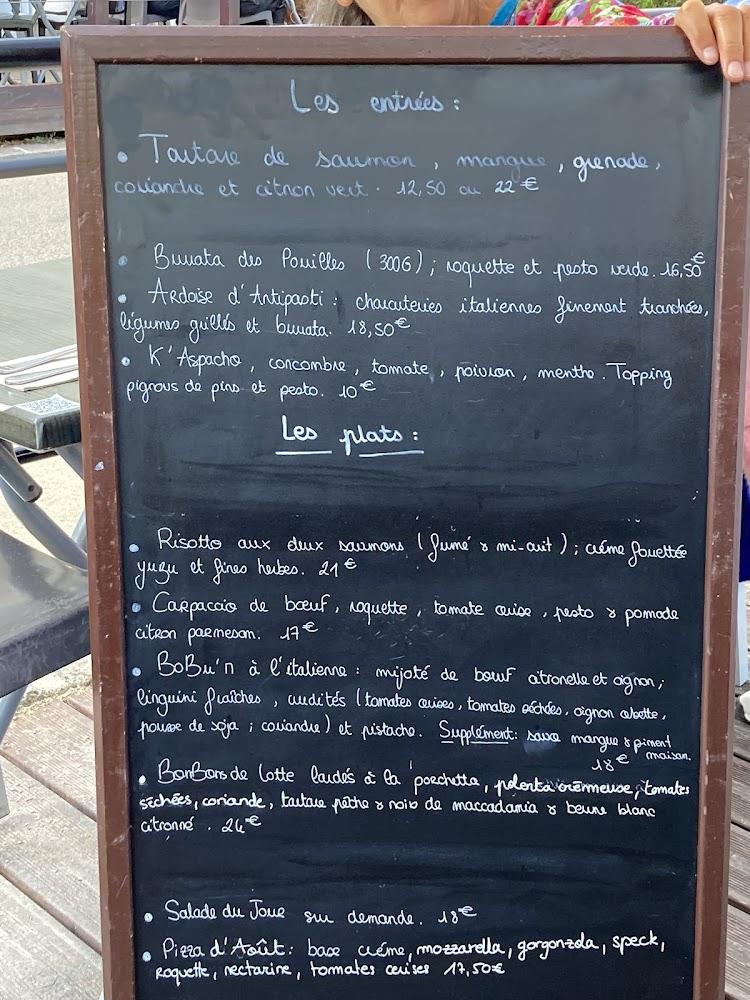 Les entrées :
• Tartare de saumon, mangue, grenade,
coriandre et citron vert. 12,50 ou 22€
• Burrata des Pouilles (300G) ; roquette et pesto verde. 16,50€
• Ardoise d'Antipasti : charcuteries italiennes finement tranchées,
légumes grillés et burrata. 18,50€
• K'Aspacho, concombre, tomate, poivron, menthe. Topping
pignons de pins et pesto. 10€
Les plats :
• Risotto aux deux saumons (fumé & mi-cuit) ; crème fouettée
yuzu et fines herbes. 21€
• Carpaccio de bœuf, roquette, tomate cerise, pesto & pomade
citron parmesan. 17€
• BoBu'n à l'italienne : mijoté de bœuf citronelle et oignon ;
linguini fraîches, crudités (tomates cerises, tomates séchées, oignon cebette,
pousse de soja ; coriandre) et pistache. Supplément : sauce mangue & piment
18€ maison.
• BonBons de lotte lardés à la porchetta, polenta crèmeuse, tomates
séchées, coriande, tartare pêche & noix de maccadamia & beurre blanc
citronné. 24€
• Salade du Jour sur demande. 18€
• Pizza d'Août : base crème, mozzarella, gorgonzola, speck,
Roquette, nectarine, tomates cerises 17,50€